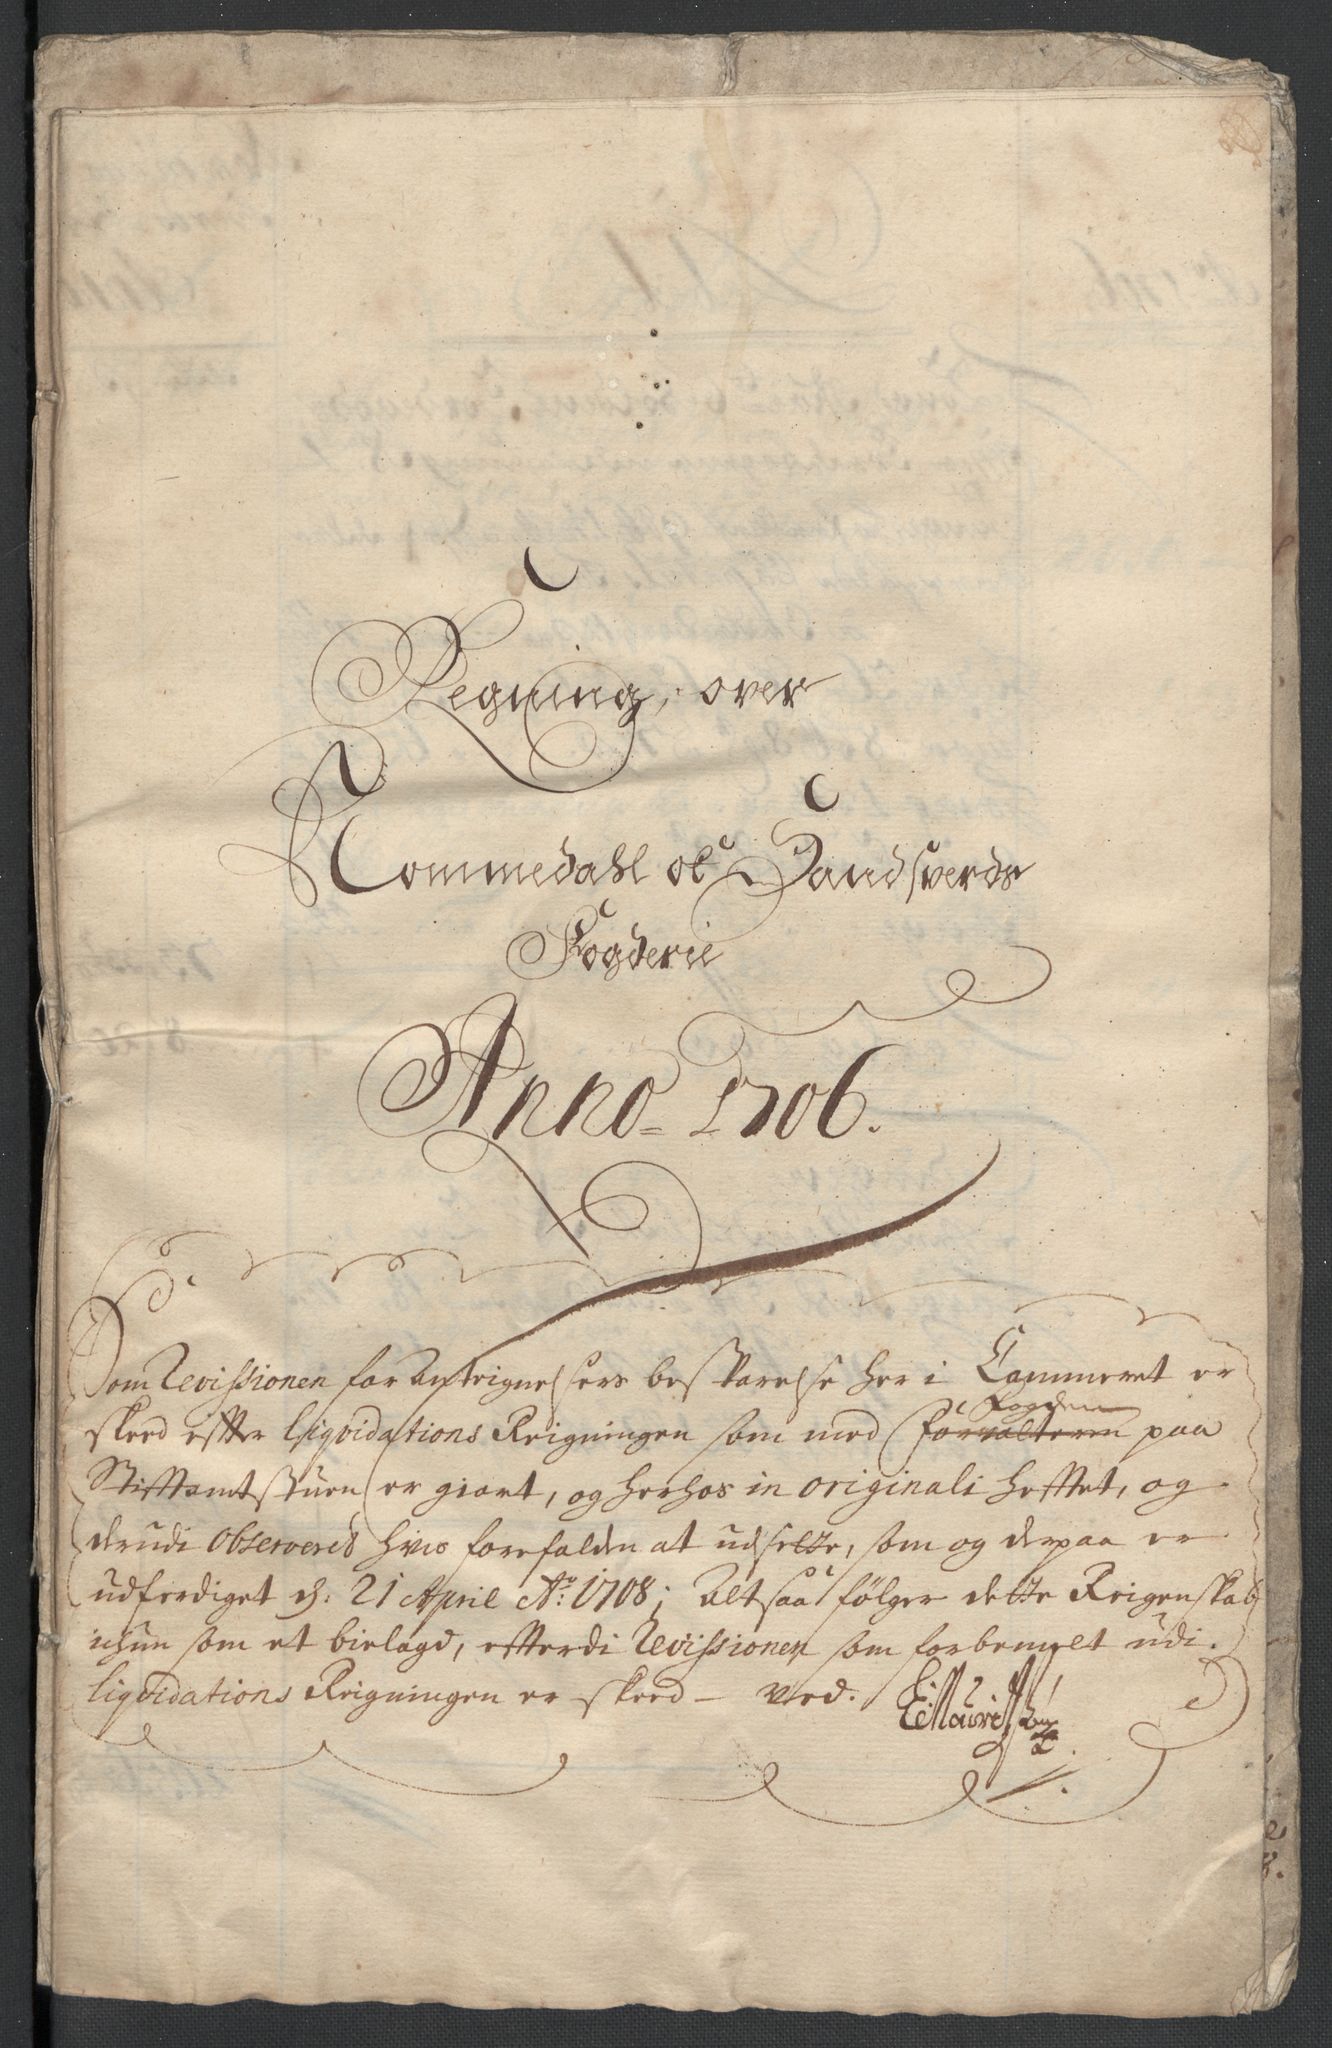 Regning, over
Nommedahl oc Sandsverds
Fogderie
Anno 1706.
Som Revissionen for Anteignelsers beskarelse her i Cammeret er
skeed effter Liqvidations Reigningen som med Fogden paa
Stifftamtstuen er giort, og herhos in originali hefftet, og
derudi observeret hvis forefalden at udsette, som og derpaa er
udferdiget d: 21 April Ao: 1708; Altsaa følger dette Reigenskab
ichun som et bielagd, efterdi Revissionen som forbemelt udi
liqvidations Reigningen er skeed - ved.